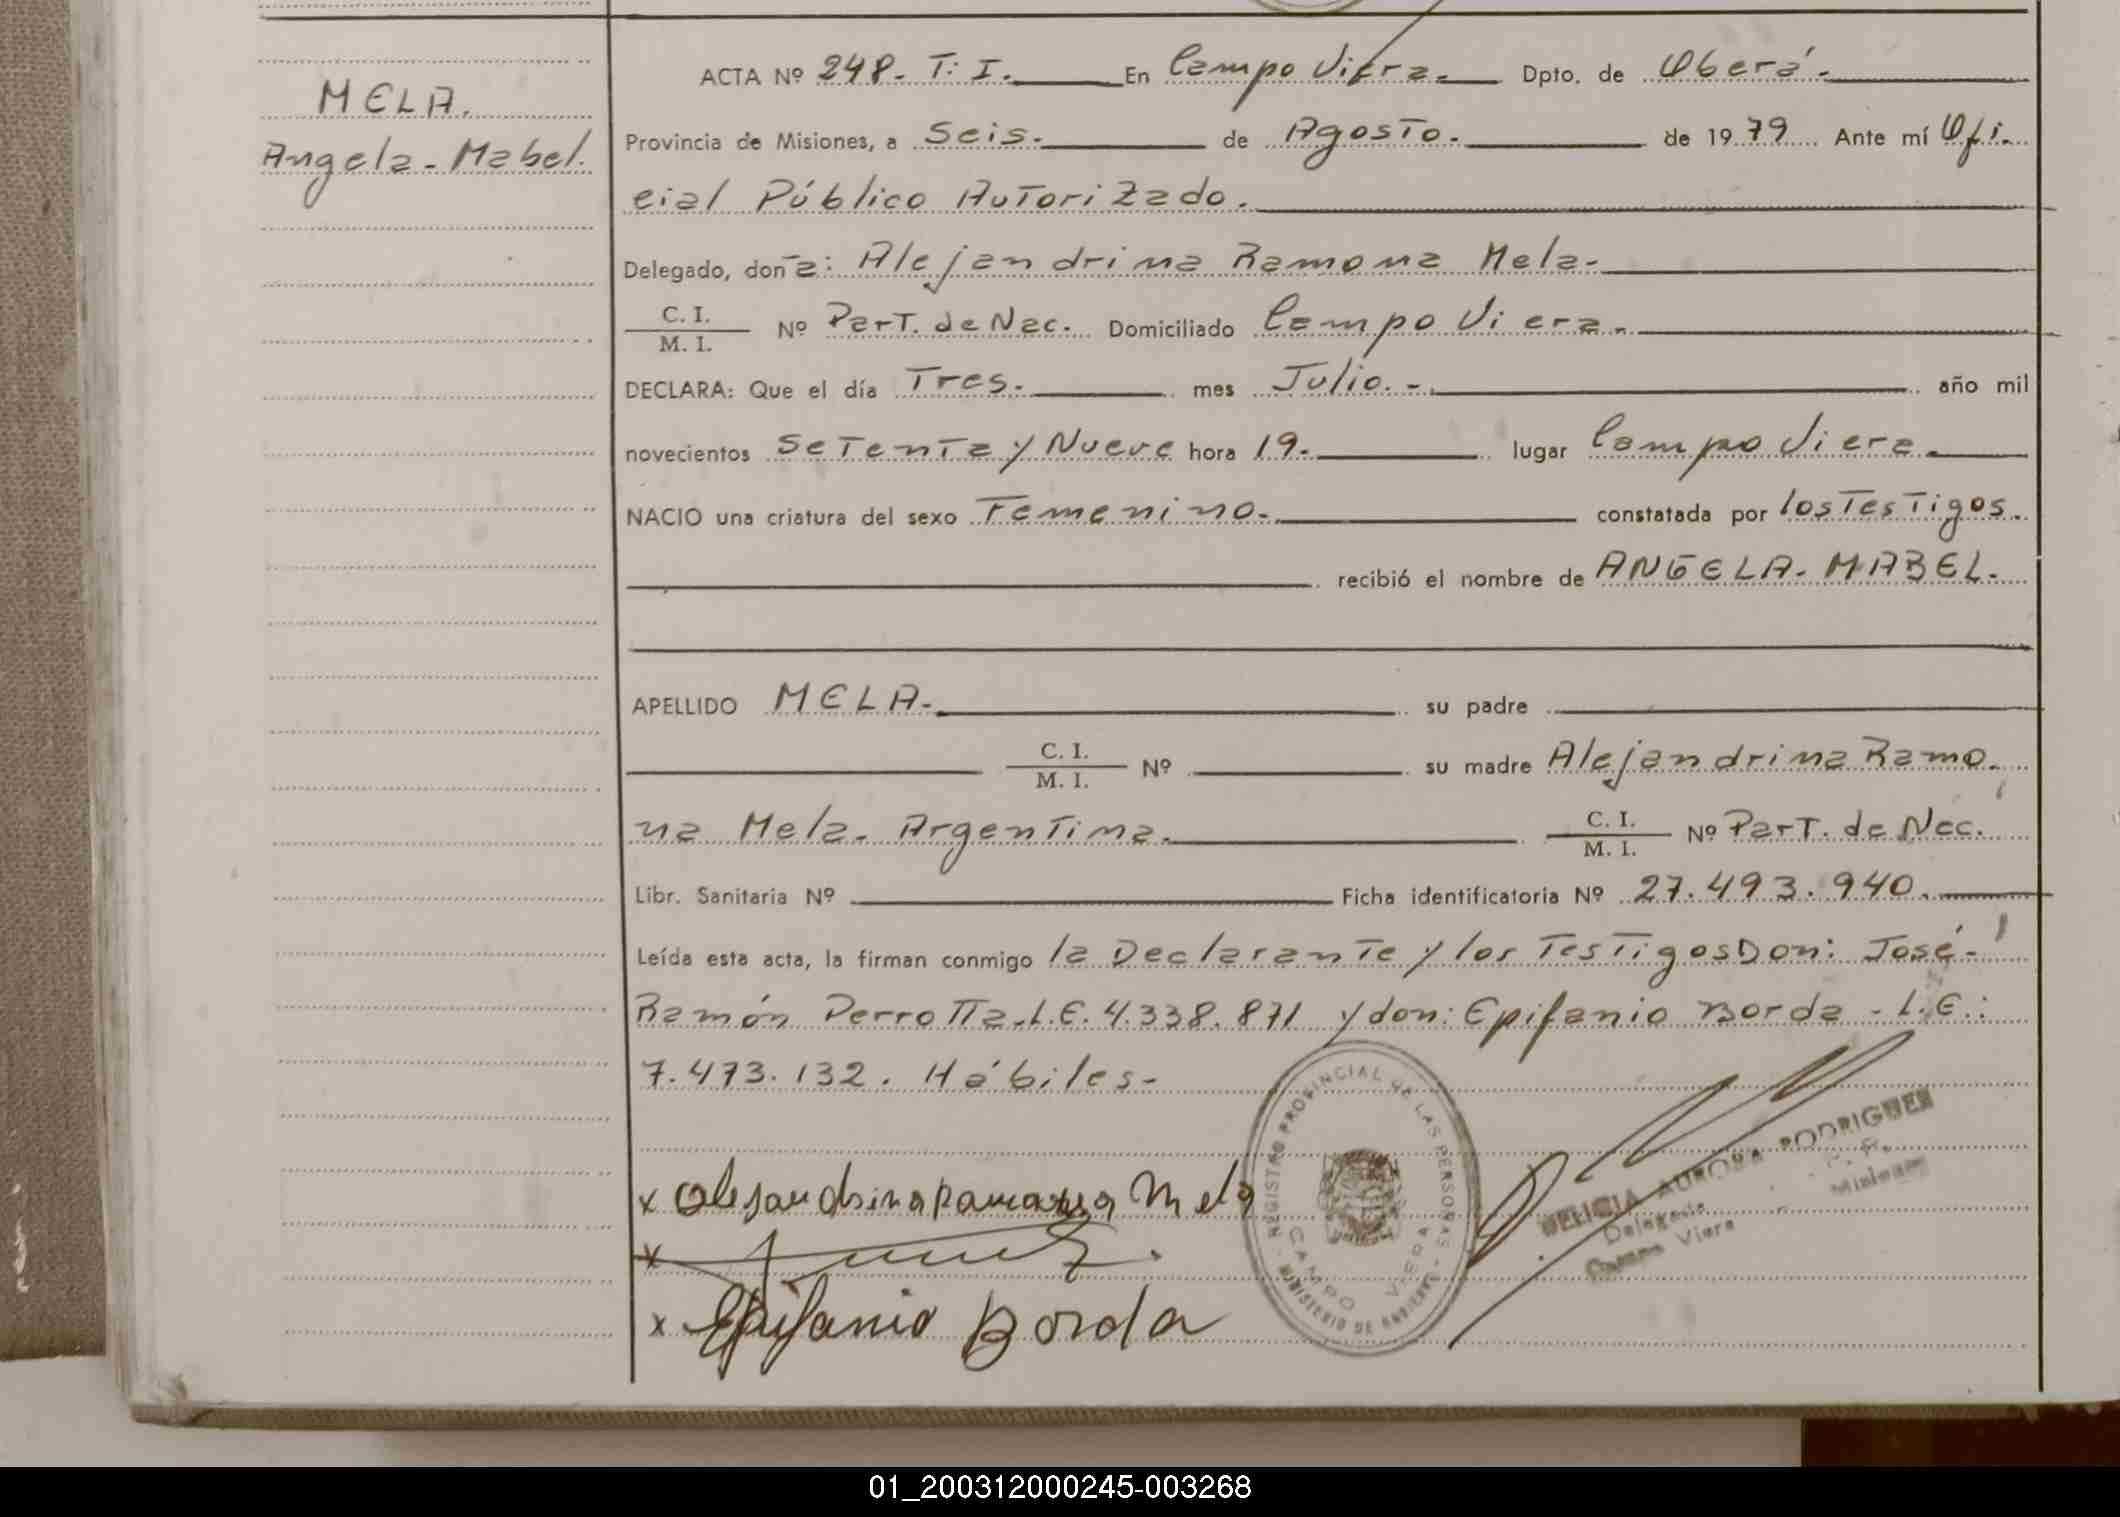 MELA.
Angela-Mabel.
ACTA Nº 248- T: I. En Campo Viera. Dpto. de Oberá.
Provincia de Misiones, a Seis. de Agosto. de 1979 Ante mí Ofi-
cial Público Autorizado.
Delegado, don a: Alejandrina Ramona Mela-
C. I.
M. I. Nº Part. de Nac. Domiciliado Campo Viera.
DECLARA: Que el día Tres. mes Julio.- año mil
novecientos Setenta y Nueve hora 19. lugar Campo Viera
NACIO una criatura del sexo Femenino. constatada por los Testigos.
recibió el nombre de ANGELA-MABEL.
APELLIDO MELA- su padre
C. I.
M. I. Nº su madre Alejandrina Ramo-
na Mela- Argentina. C. I.
M. I. Nº Part. de Nac.
Libr. Sanitaria Nº Ficha identificatoria Nº 27.493.940.
Leída esta acta, la firman conmigo la Declarante y los Testigos Don: José-
Ramón Perrotta-L.E. 4.338.871 y don: Epifanio Borda - L.E.:
7.473.132. Hábiles-
x Alejandrina Ramona Mela
x
x Epifanio Borda
REGISTRO PROVINCIAL DE LAS PERSONAS
MINISTERIO DE GOBIERNO
CAMPO VIERA
DELICIA AURORA RODRIGUEZ
Delegada
Campo Viera
01_200312000245-003268